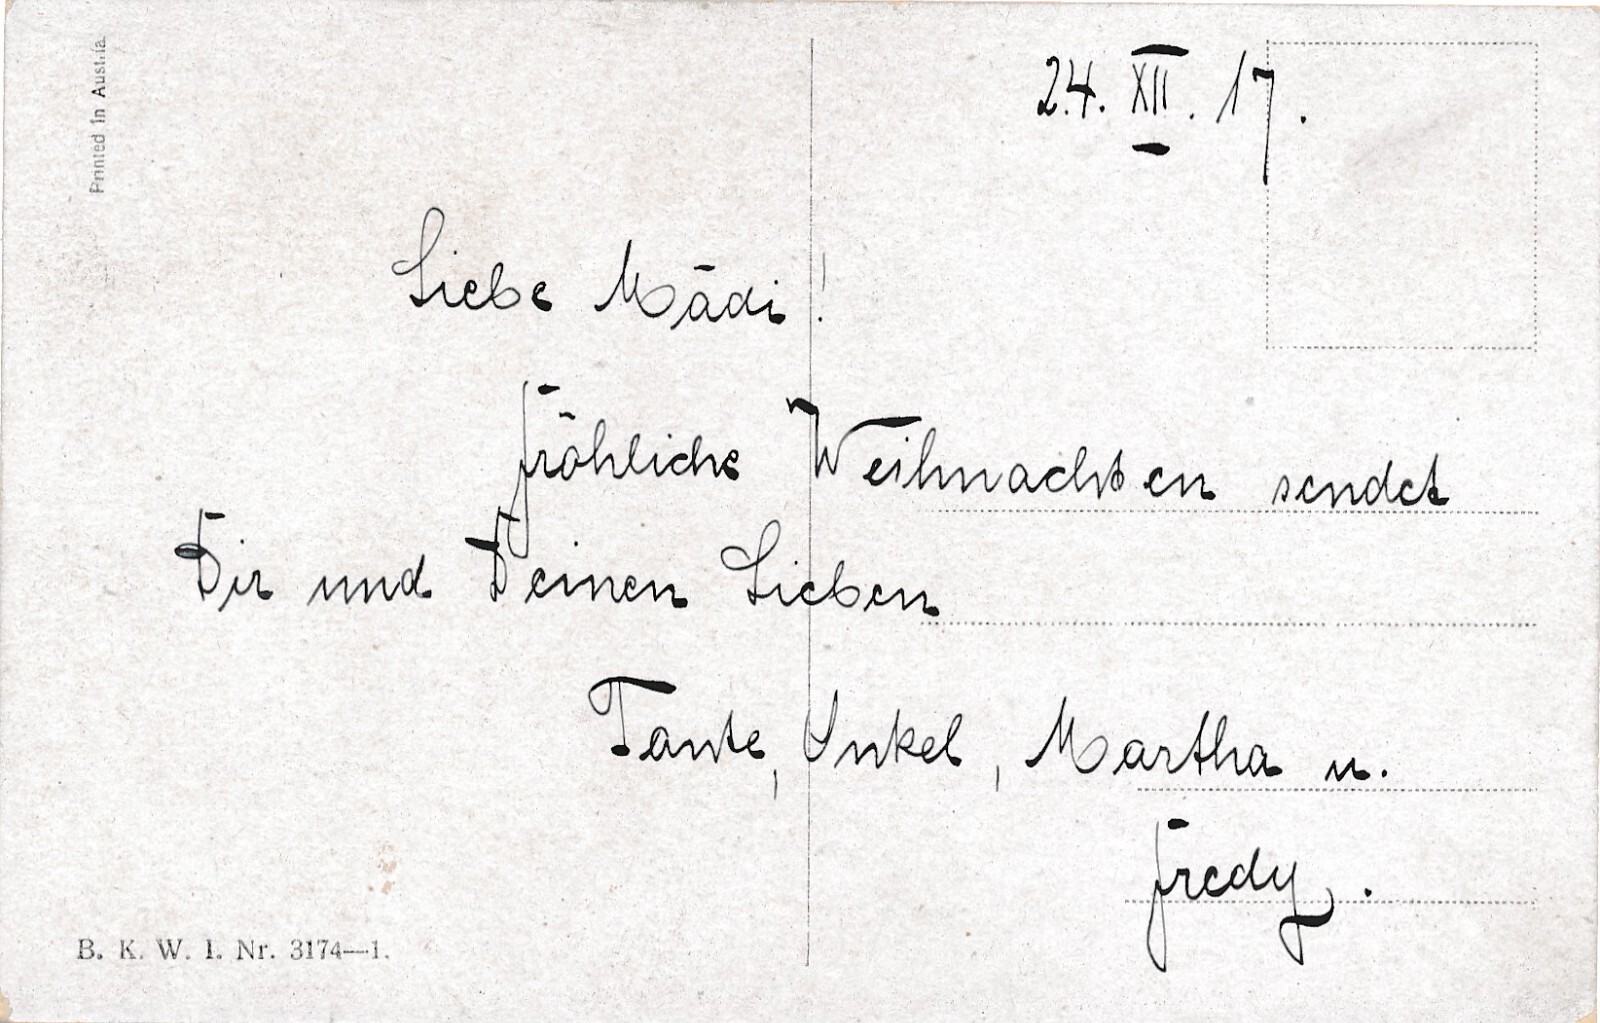 Printed in Austria
24. XII. 17.
Liebe Mädi!
Fröhliche Weihnachten sendet
Dir und Deinen Lieben
Tante, Onkel, Martha u.
Fredy.
B. K. W. I. Nr. 3174—1.